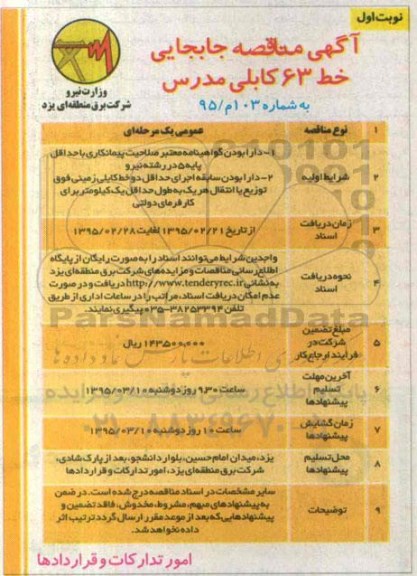 نوبت اول
آگهی مناقصه جابجایی
خط ۶۳ کابلی مدرس
به شماره ۱۰۳م/۹۵
وزارت نیرو
شرکت برق منطقه‌ای یزد
۱ نوع مناقصه عمومی یک مرحله‌ای
۲ شرایط اولیه
۱- دارا بودن گواهینامه معتبر صلاحیت پیمانکاری با حداقل
پایه ۵ در رشته نیرو
۲- دارا بودن سابقه اجرای حداقل دو خط کابلی زمینی فوق
توزیع یا انتقال هر یک به طول حداقل یک کیلومتر برای
کارفرمای دولتی
۳ زمان دریافت
اسناد
از تاریخ ۱۳۹۵/۰۲/۲۱ لغایت ۱۳۹۵/۰۲/۲۸
۴ نحوه دریافت
اسناد
واجدین شرایط می‌توانند اسناد را به صورت رایگان از پایگاه
اطلاع رسانی مناقصات و مزایده‌های شرکت برق منطقه‌ای یزد
به نشانی http://www.tenderyrec.ir دریافت و در صورت
عدم امکان دریافت اسناد، مراتب را در ساعات اداری از طریق
تلفن ۳۸۲۵۳۳۹۴-۰۳۵ پیگیری نمایند.
۵ مبلغ تضمین
شرکت در
فرآیند ارجاع کار
۱۴۳۵۰۰،۰۰۰ ریال
۶ آخرین مهلت
تسلیم
پیشنهادها
ساعت ۹:۳۰ روز دوشنبه ۱۳۹۵/۰۳/۱۰
۷ زمان گشایش
پیشنهادها
ساعت ۱۰ روز دوشنبه ۱۳۹۵/۰۳/۱۰
۸ محل تسلیم
پیشنهادها
یزد، میدان امام حسین، بلوار دانشجو، بعد از پارک شادی،
شرکت برق منطقه‌ای یزد، امور تدارکات و قراردادها
۹ توضیحات
سایر مشخصات در اسناد مناقصه درج شده است. در ضمن
به پیشنهادهای مبهم، مشروط، مخدوش، فاقد تضمین و
پیشنهادهایی که بعد از موعد مقرر ارسال گردد ترتیب اثر
داده نخواهد شد.
امور تدارکات و قراردادها
ParsNamadData